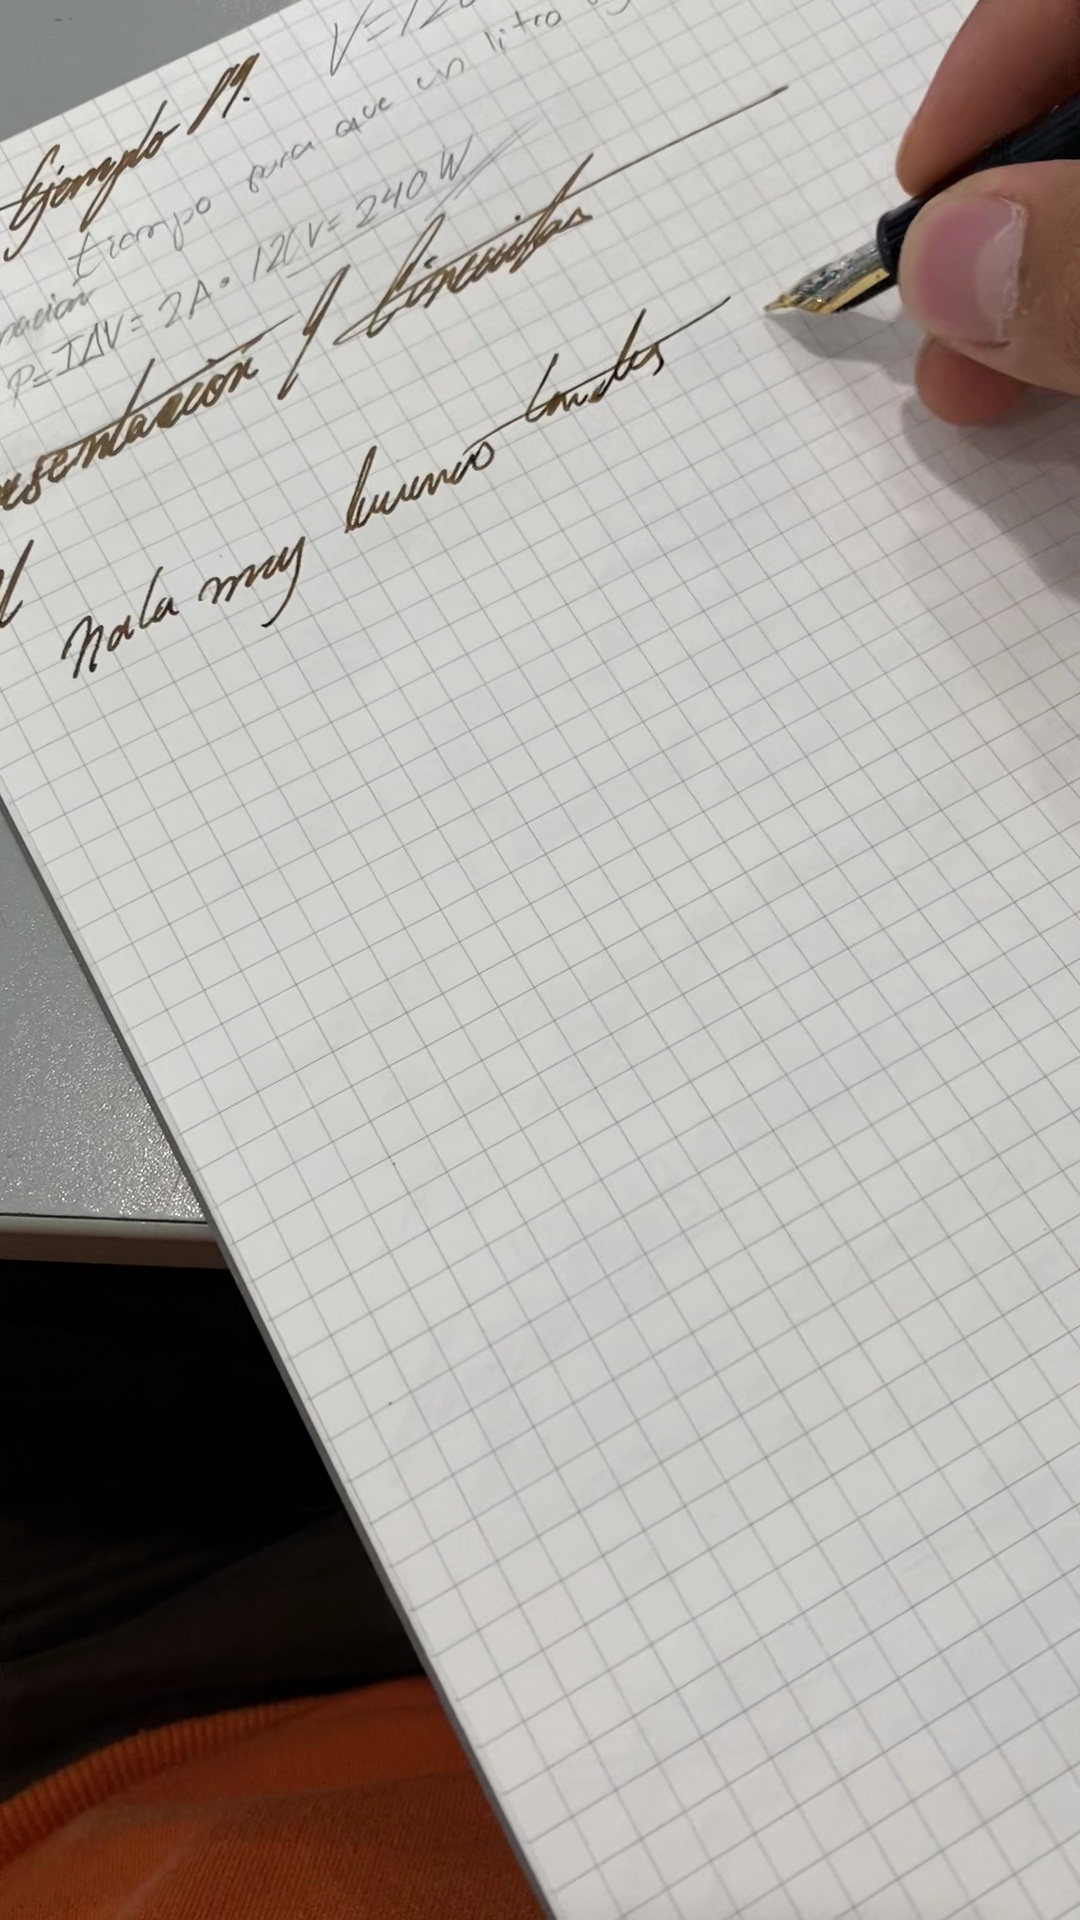 V=120
Ejemplo 19.
tiempo para que un litro
P=IΔV= 2A • 120V= 240W
esentación y Circuitos
hola muy buenas tardes